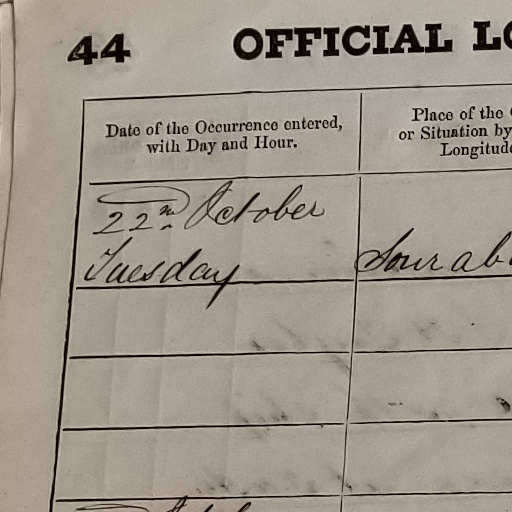 44 OFFICIAL LO
Date of the Occurrence entered,
with Day and Hour.
Place of the
or Situation by
Longitude
22nd October
Tuesday
Sourab